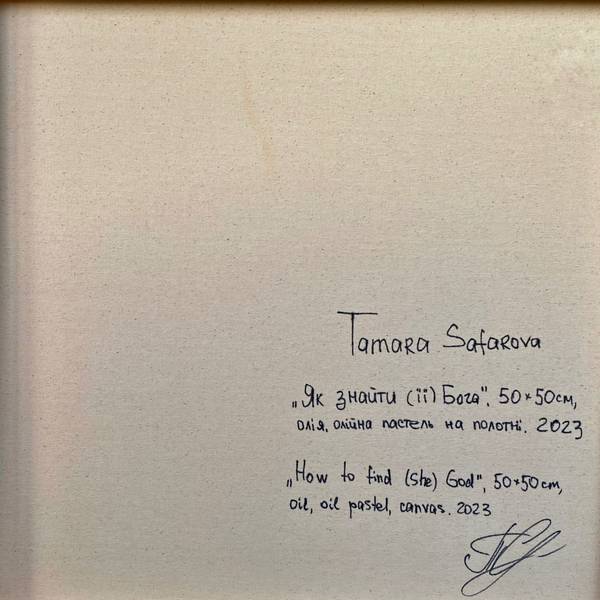 Tamara Safarova
„Як знайти (її) Бога". 50×50см,
олія, олійна пастель на полотні. 2023
„How to find (she) God", 50×50cm,
oil, oil pastel, canvas. 2023